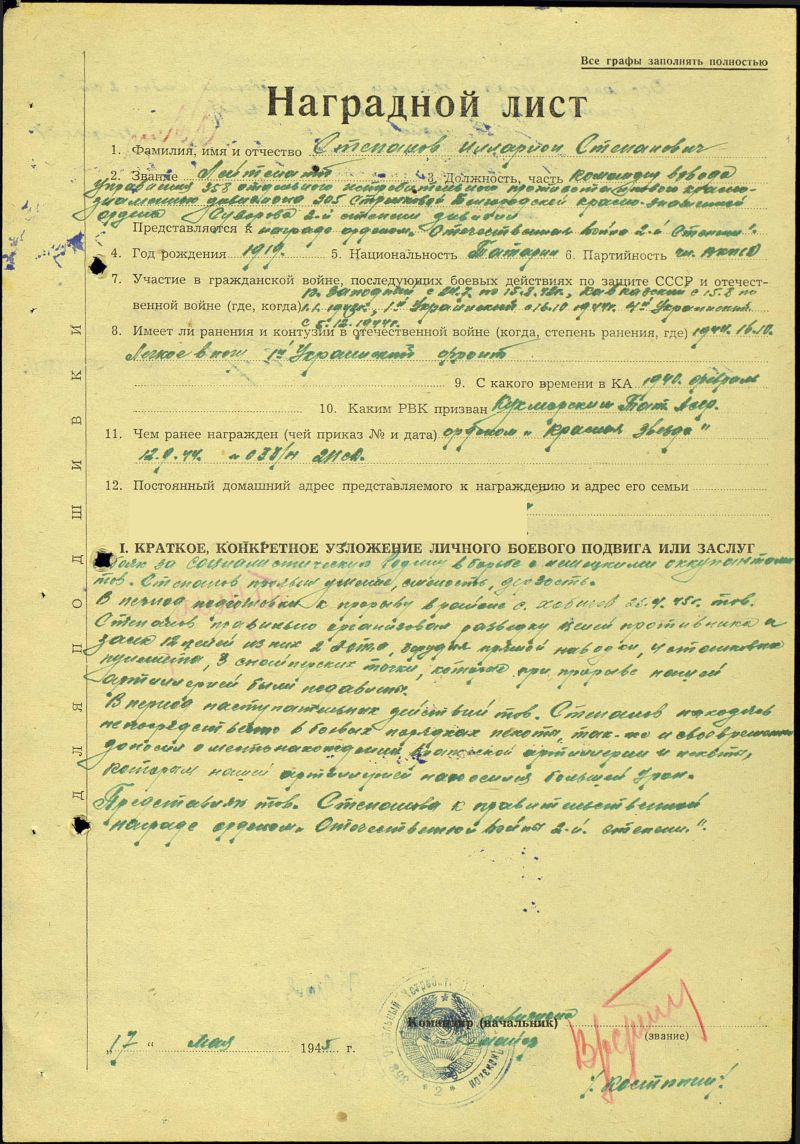 Все графы заполнять полностью
Наградной лист
1. Фамилия, имя и отчество Степанов Илларион Степанович
2. Звание Лейтенант 3. Должность, часть командир взвода
управления 358 отдельного истребительного противотанкового красно-
знаменного дивизиона 305 стрелковой Белгородской красно-знаменной
ордена Суворова 2-й степени дивизии
Представляется к награде орденом „Отечественная война 2-й степени".
4. Год рождения 1919. 5. Национальность Татарин 6. Партийность чл. ВКП(б)
7. Участие в гражданской войне, последующих боевых действиях по защите СССР и отечест-
Западный с по 15.8.42г., Кавказский с 15.8 по
венной войне (где, когда) 1-й Украинский с 16.10 1944г. 4-й Украинский
с 5.12.1944г.
8. Имеет ли ранения и контузии в отечественной войне (когда, степень ранения, где) 1944. 16.10.
Легкое в 1й Украинский фронт
9. С какого времени в КА 1940. февраль
10. Каким РВК призван Кукморским Тат. Асср.
11. Чем ранее награжден (чей приказ № и дата) орденом „Красная звезда"
12.9.44. 038/н
12. Постоянный домашний адрес представляемого к награждению и адрес его семьи
I. КРАТКОЕ, КОНКРЕТНОЕ УЗЛОЖЕНИЕ ЛИЧНОГО БОЕВОГО ПОДВИГА ИЛИ ЗАСЛУГ
В боях за Социалистическую Родину в борьбе с немецкими оккупантами
тов. Степанов проявил умение, смелость, дерзость.
В период подготовки к прорыву в районе с. тов.
Степанов правильно организовал разведку целей противника и
засек 12 целей из них 2 орудия прямой наводки, 4 станковых
пулемета, 3 снайперских точки, которые при прорыве нашей
артиллерией были подавлены.
В период наступательных действий тов. Степанов находясь
непосредственно в боевых порядках пехоты, так-же и своевременно
доносил о местонахождении вражеской артиллерии и пехоты,
которым нашей артиллерией наносился большой урон.
Представляю тов. Степанова к правительственной
награде орденом „Отечественной войны 2-й степени".
ДЛЯ ПОДШИВКИ
Командир (начальник) дивизиона
майор
(звание)
„17" мая 1945 г.